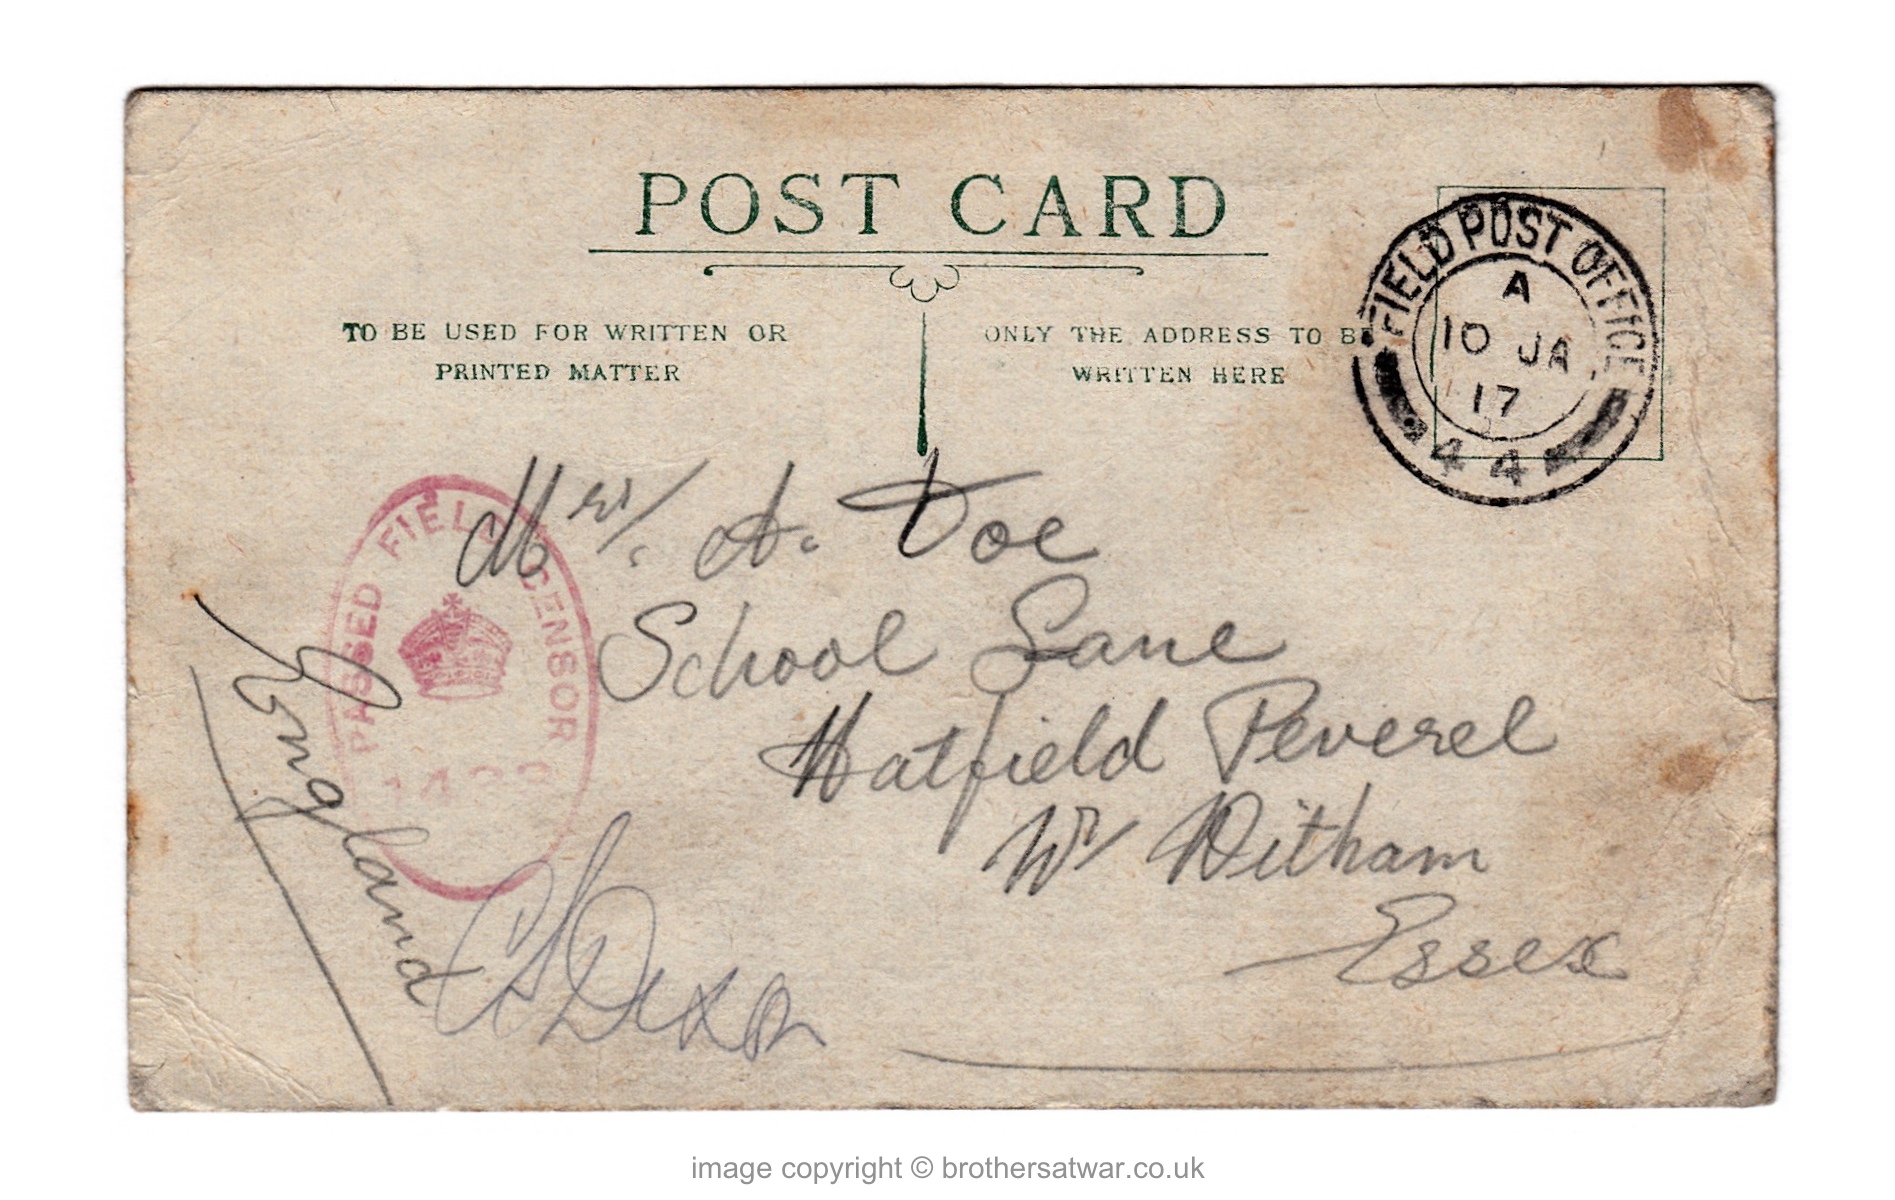 POST CARD
TO BE USED FOR WRITTEN OR
PRINTED MATTER
ONLY THE ADDRESS TO BE
WRITTEN HERE
FIELD POST OFFICE
A
10 JA
17
44
PASSED FIELD CENSOR
Mrs. A. Doe
School Lane
Hatfield Peverel
Nr Witham
Essex
England
image copyright © brothersatwar.co.uk